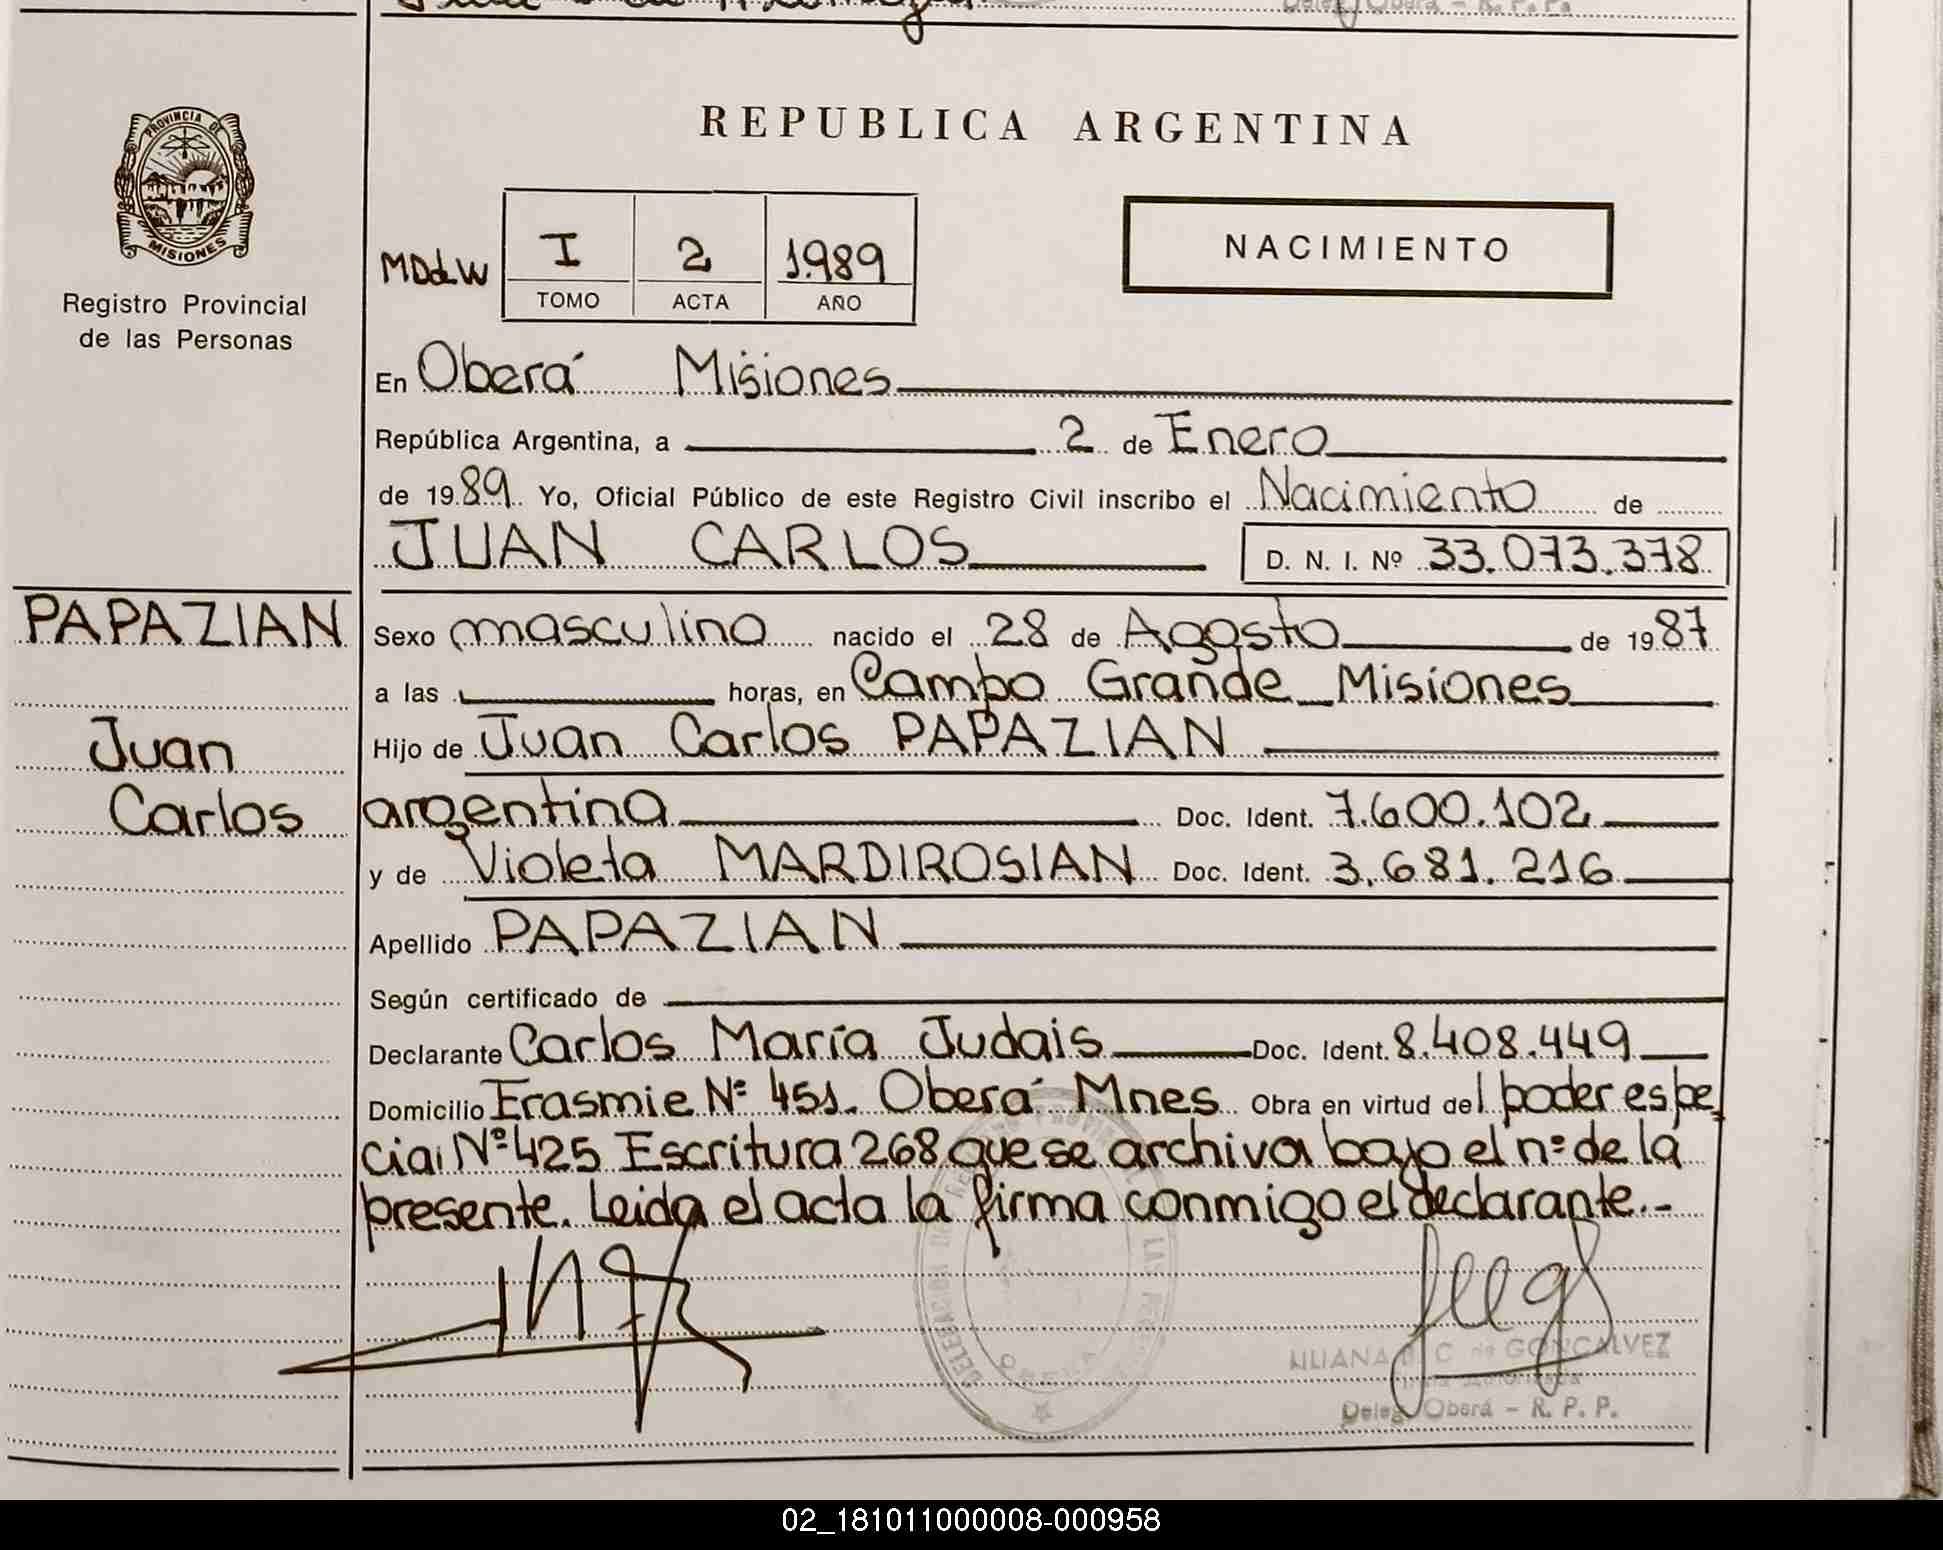 Deleg Oberá - R. P. P.
PROVINCIA DE
MISIONES
Registro Provincial
de las Personas
REPUBLICA ARGENTINA
MDdLW
I 2 1989
TOMO ACTA AÑO
NACIMIENTO
En Oberá Misiones
República Argentina, a 2 de Enero
de 1989 Yo, Oficial Público de este Registro Civil inscribo el Nacimiento de
JUAN CARLOS D. N. I. Nº 33.073.378
PAPAZIAN
Juan
Carlos
Sexo masculino nacido el 28 de Agosto de 1987
a las horas, en Campo Grande Misiones
Hijo de Juan Carlos PAPAZIAN
argentina Doc. Ident. 7.600.102
y de Violeta MARDIROSIAN Doc. Ident. 3.681.216
Apellido PAPAZIAN
Según certificado de
Declarante Carlos María Judais Doc. Ident. 8.408.449
Domicilio Erasmie Nº 451. Oberá Mnes Obra en virtud del poder espe
cial Nº 425 Escritura 268 que se archiva bajo el nº de la
presente. Leida el acta la firma conmigo el declarante.-
LILIANA C de GONCALVEZ
Deleg Oberá - R. P. P.
02_181011000008-000958